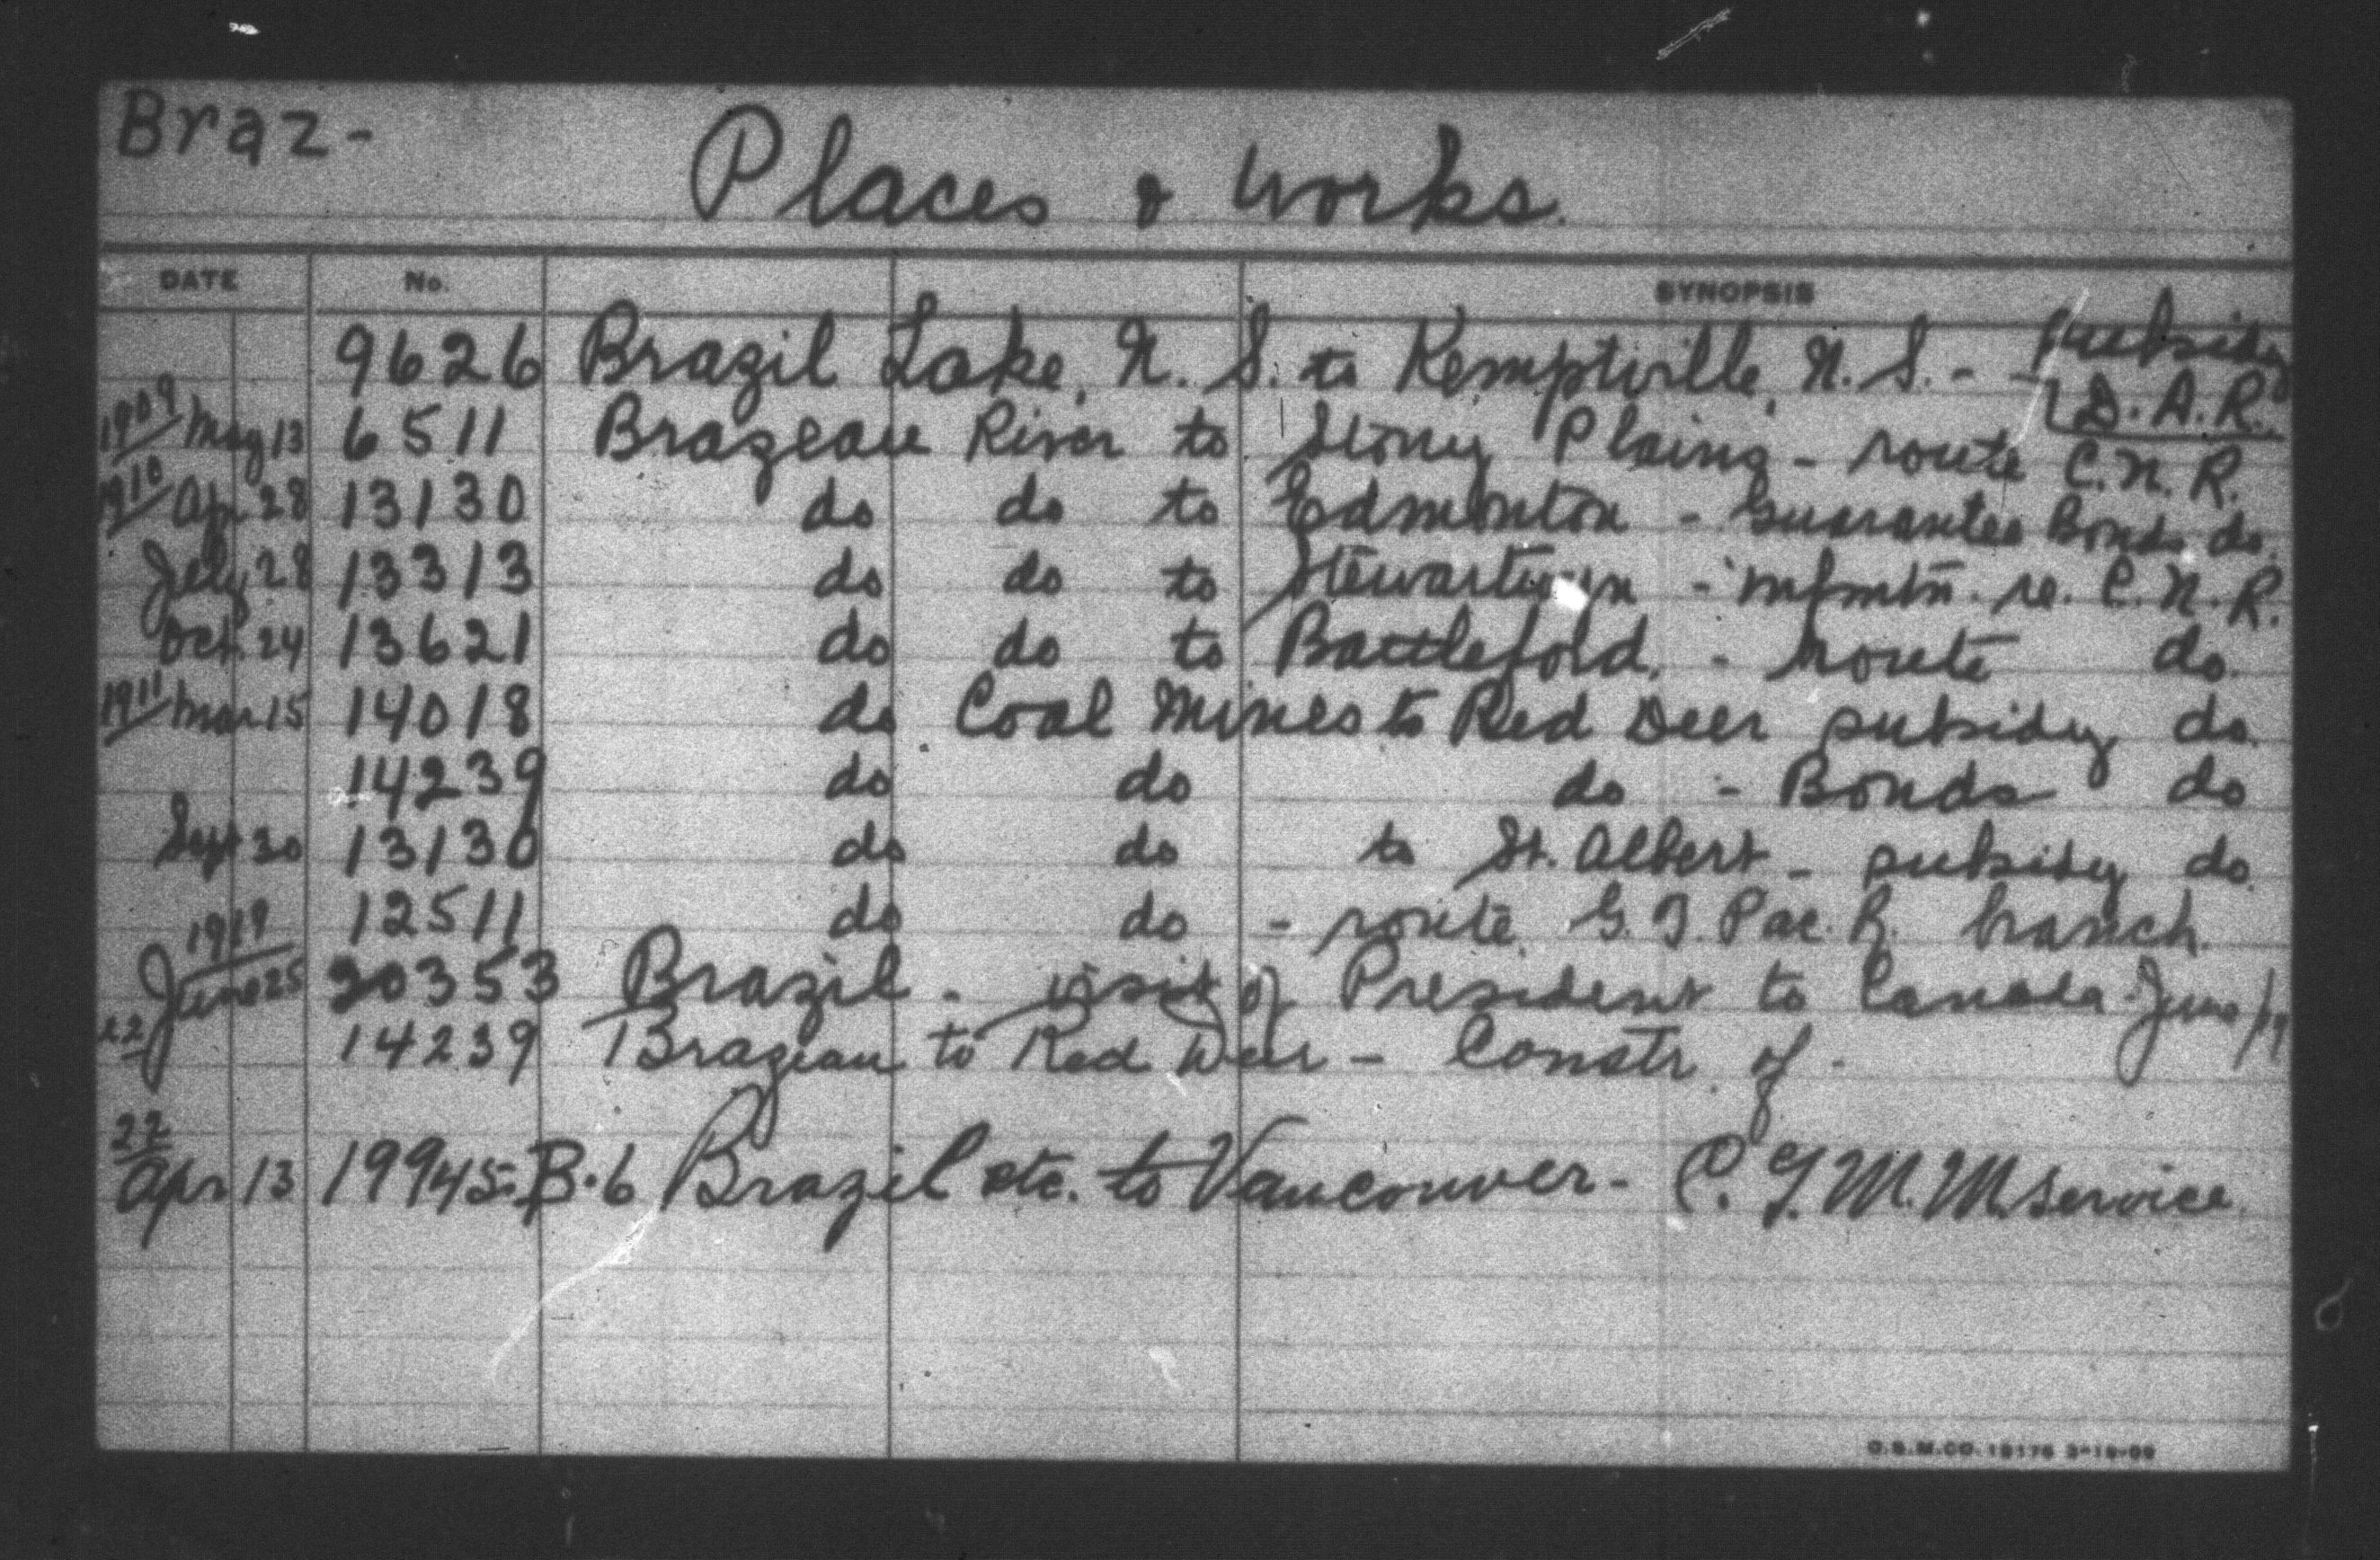 Braz-
Places & Works.
DATE No. SYNOPSIS
9626 Brazil Lake, N. S. to Kemptville, N. S. - - Subsidy D. A. R.
1909 May 13 6511 Brazeau River to Stony Plains - route C. N. R.
1910 Apr 28 13130 do do to Edmonton - Guarantee Bonds do.
July 28 13313 do do to Stewartown - infmtn. re. C. N. R.
Oct. 24 13621 do do to Battleford. - route do
1911 Mar 15 14018 do Coal Mines to Red Deer subsidy do.
14239 do do do - Bonds do
Sept 30 13130 do do to St. Albert - subsidy do.
12511 do do - route G. T. Pac. R. branch.
1919 June 25 20353 Brazil - visit of President to Canada - June/19
22 14239 Brazeau to Red Deer - Constr. of -
22 Apr 13 19945-B-6 Brazil etc. to Vancouver - C. G. M. M. service.
O.S.M.CO. 19176 3-19-09